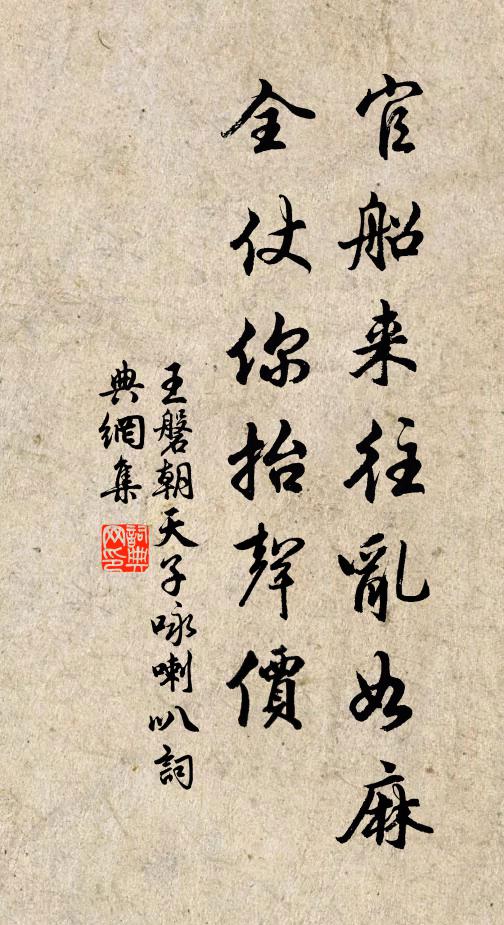 官船来往亂如麻
全仗你抬聲價
王磐朝天子咏喇叭詞
典網集
詞典網印